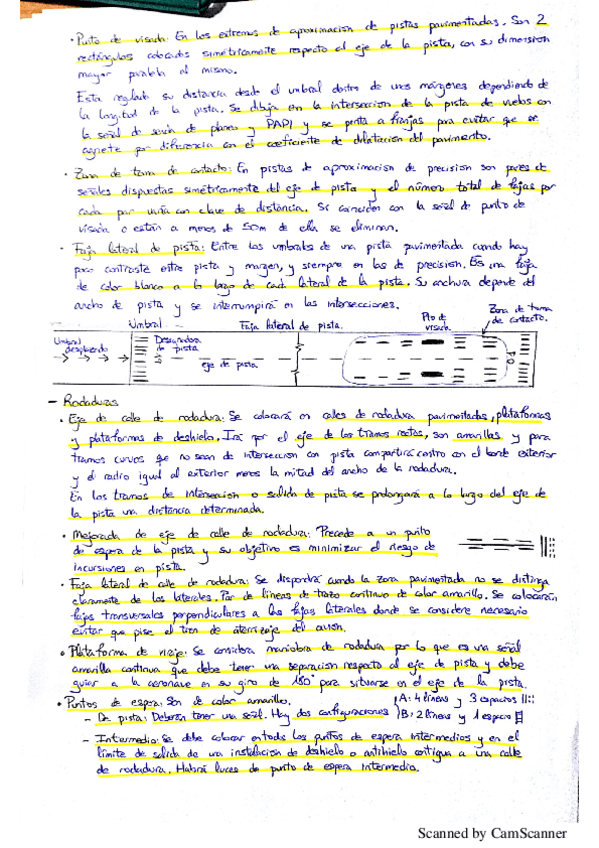 · Punto de visada: En los extremos de aproximación de pistas pavimentadas. Son 2
rectángulos colocados simétricamente respecto al eje de la pista, con su dimensión
mayor paralela al mismo.
Esta reglado su distancia desde el umbral dentro de unos márgenes dependiendo de
la longitud de la pista. Se dibuja en la intersección de la pista de vuelos con
la senda de planeo y PAPI y se pinta a franjas para evitar que se
agriete por diferencia con el coeficiente de dilatación del pavimento.
· Zona de toma de contacto: En pistas de aproximación de precisión son pares de
señales dispuestas simétricamente del eje de pista y el número total de fajas por
cada par varía con clave de distancia. Si coinciden con la señal de punto de
visada o están a menos de 50m de ella se eliminan.
· Faja lateral de pista: Entre los umbrales de una pista pavimentada cuando hay
poco contraste entre pista y margen, y siempre en las de precisión. Es una faja
de color blanco a lo largo de cada lateral de la pista. Su anchura depende del
ancho de pista y se interrumpirá en las intersecciones.
Umbral
Faja lateral de pista.
Pto de
visada.
Zona de toma
de contacto.
Umbral
desplazado
Designadora
de pista
eje de pista
- Rodaduras
· Eje de calle de rodadura: Se colocará en calles de rodadura pavimentadas, plataformas
y plataformas de deshielo. Irá por el eje de los tramos rectos, son amarillas y para
tramos curvos que no sean de intersección con pista compartirá centro con el borde exterior
y el radio igual al exterior menos la mitad del ancho de la rodadura.
En los tramos de intersección o salida de pista se prolongará a lo largo del eje de
la pista una distancia determinada.
· Mejorada de eje de calle de rodadura: Precede a un punto
de espera de la pista y su objetivo es minimizar el riesgo de
incursiones en pista.
· Faja lateral de calle de rodadura: Se dispondrá cuando la zona pavimentada no se distinga
claramente de los laterales. Par de líneas de trazo continuo de color amarillo. Se colocarán
fajas transversales perpendiculares a las fajas laterales donde se considere necesario
evitar que pise el tren de aterrizaje del avión.
· Plataforma de viraje: Se considera maniobra de rodadura por lo que es una señal
amarilla continua que debe tener una separación respecto al eje de pista y debe
guiar a la aeronave en su giro de 180° para situarse en el eje de la pista.
· Puntos de espera: Son de color amarillo.
- De pista: Deberán tener una señal. Hay dos configuraciones
A: 4 líneas y 3 espacios
B: 2 líneas y 1 espacio
- Intermedio: Se debe colocar en todos los puntos de espera intermedios y en el
límite de salida de una instalación de deshielo o antihielo contigua a una calle
de rodadura. Habrá luces de punto de espera intermedio.
Scanned by CamScanner